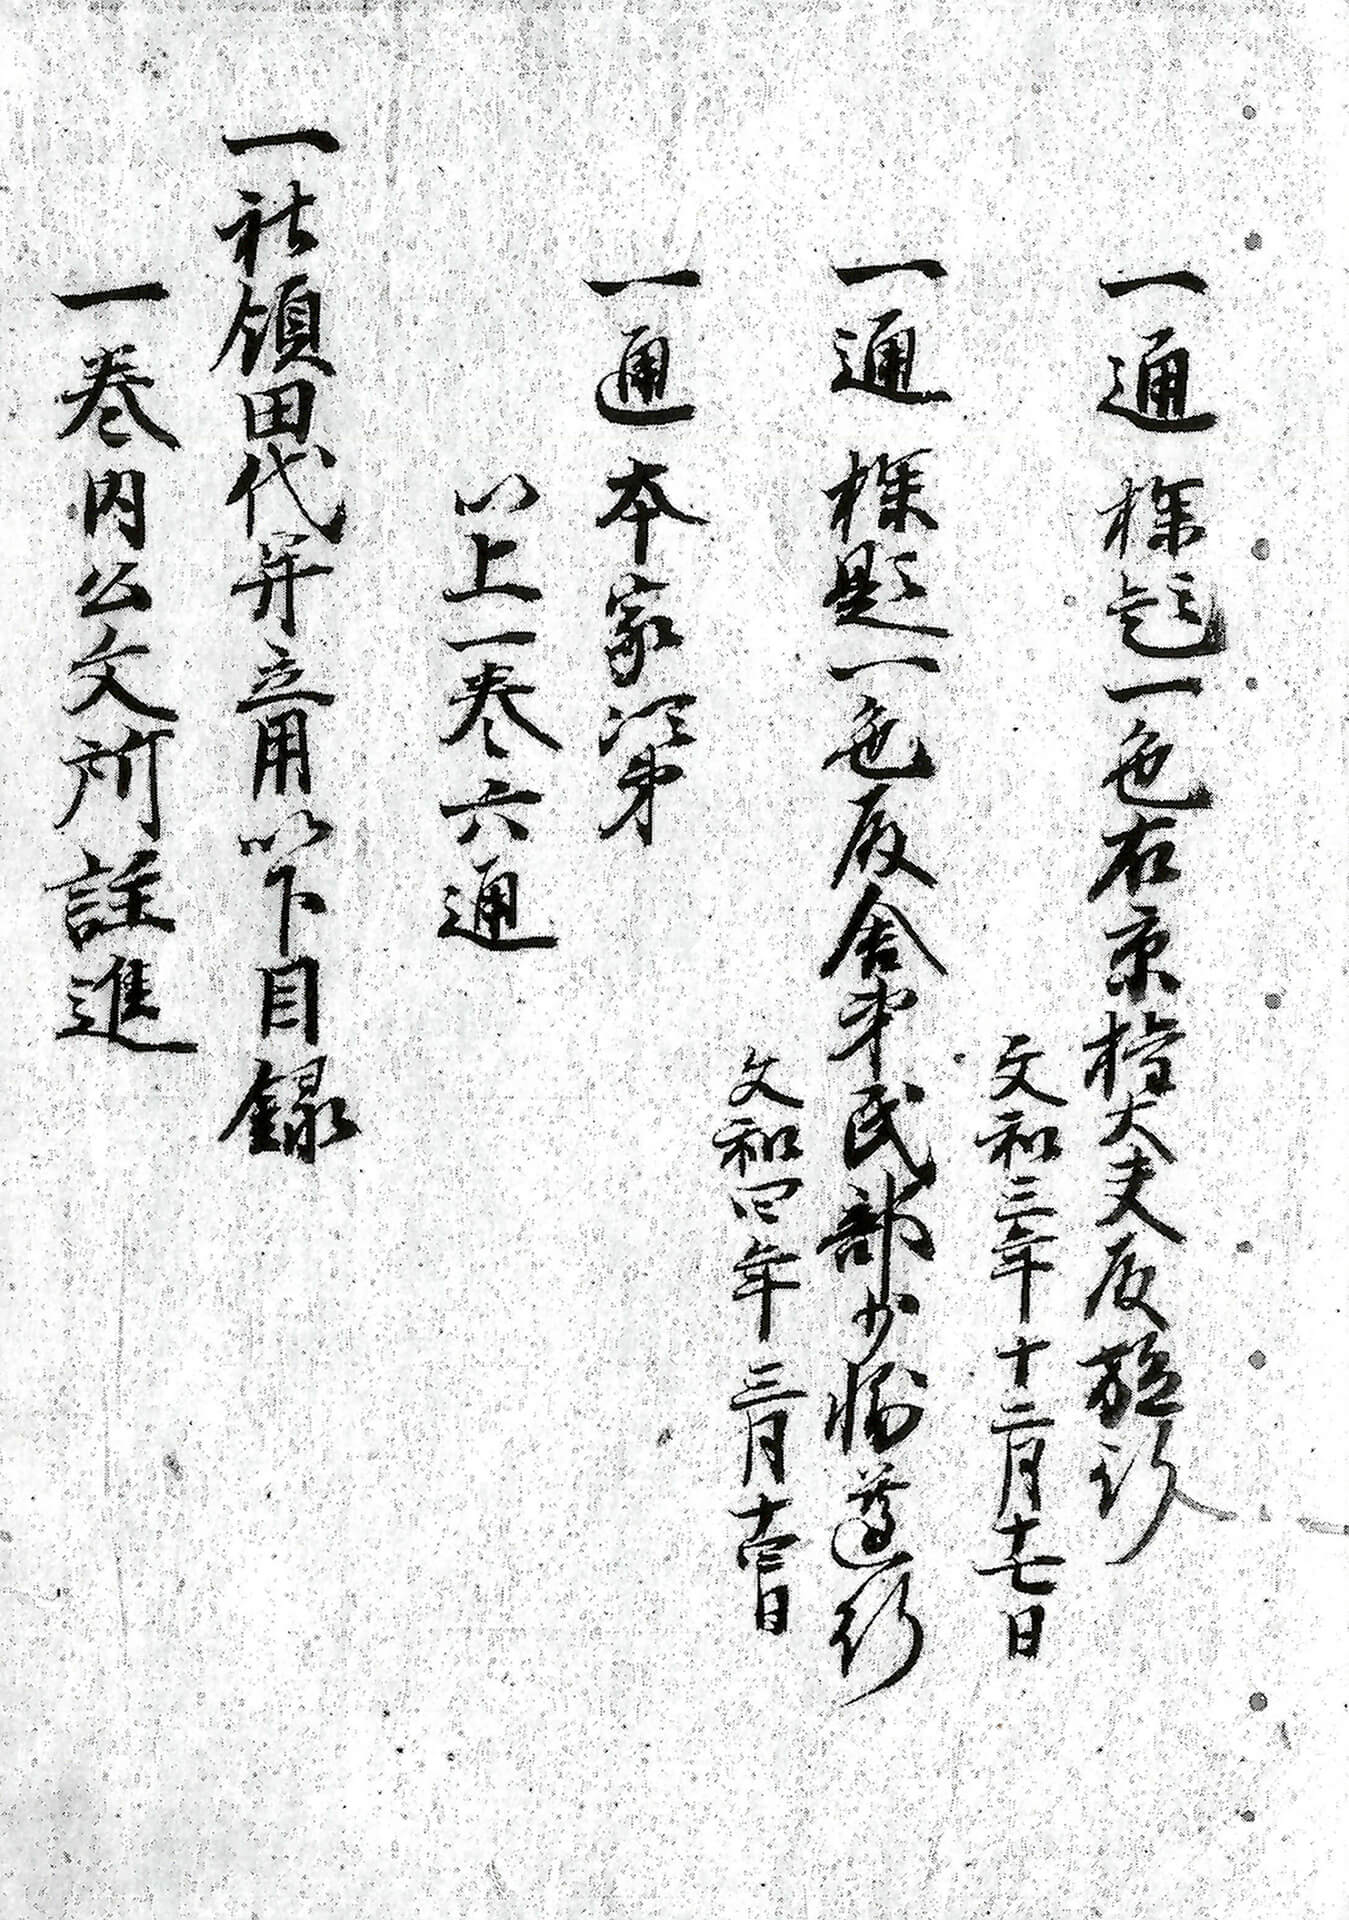 一通 標題一色右京権大夫殿施行
文和三年十二月十七日
一通 標題一色殿舎弟民部少輔遵行
文和四年三月十三日
一通 本家次第
以上一巻六通
一社領田代并立用以下目録
一巻内公文所註進